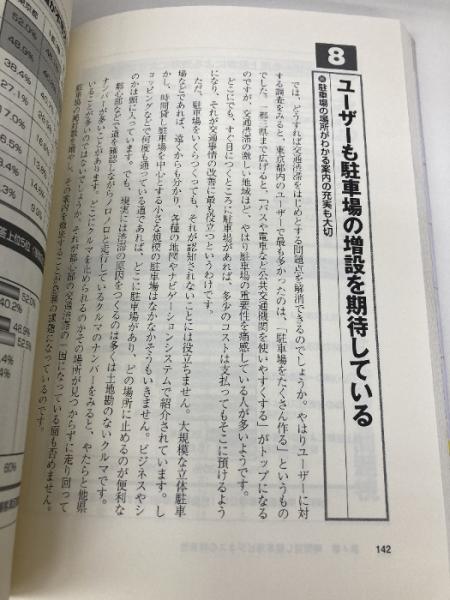 8
ユーザーも駐車場の増設を期待している
●駐車場の場所がわかる案内の充実も大切
では、どうすれば交通渋滞をはじめとする問題点を解消できるのでしょうか。やはりユーザーに対
する調査をみると、東京都内のユーザーで最も多かったのは、「駐車場をたくさん作る」というもの
でした。一都三県まで広げると、「バスや電車など公共交通機関を使いやすくする」がトップになる
のですが、交通渋滞の激しい地域ほど、やはり駐車場の重要性を痛感している人が多いようです。
どこにでも、すぐ目につくところに駐車場があれば、多少のコストは支払ってもそこに預けるよう
になり、それが交通事情の改善に最も役立つというわけです。
ただ、駐車場をいくらつくっても、それが認知されないことには役立ちません。大規模な立体駐車
場などであれば、遠くからも分かり、各種の地図やナビゲーションシステムで紹介されています。し
かし、時間貸し駐車場を中心とする小さな規模の駐車場はなかなかそうもいきません。ビジネスやシ
ョッピングなどで何度も通っている道であれば、どこに駐車場があり、どの場所に止めるのが便利な
のかは頭に入っています。でも、現実には渋滞の原因をつくるのは多くは土地勘のないクルマです。
都心部などで道を確認しながらノロノロと走行しているクルマのナンバーをみると、やたらと他県
ナンバーが多いことがあります。どこにクルマを止められるのかその場所が見つからずに走り回って
いることが多いのではないでしょうか。それが都心部の交通渋滞の一因になっている面も否めません。
駐車場の絶対数を増やし、その案内を徹底することが急務の課題になっているのです。
142
52.0%
48.9%
38.4%
27.1%
17.0%
40.2%
52.0%
60%